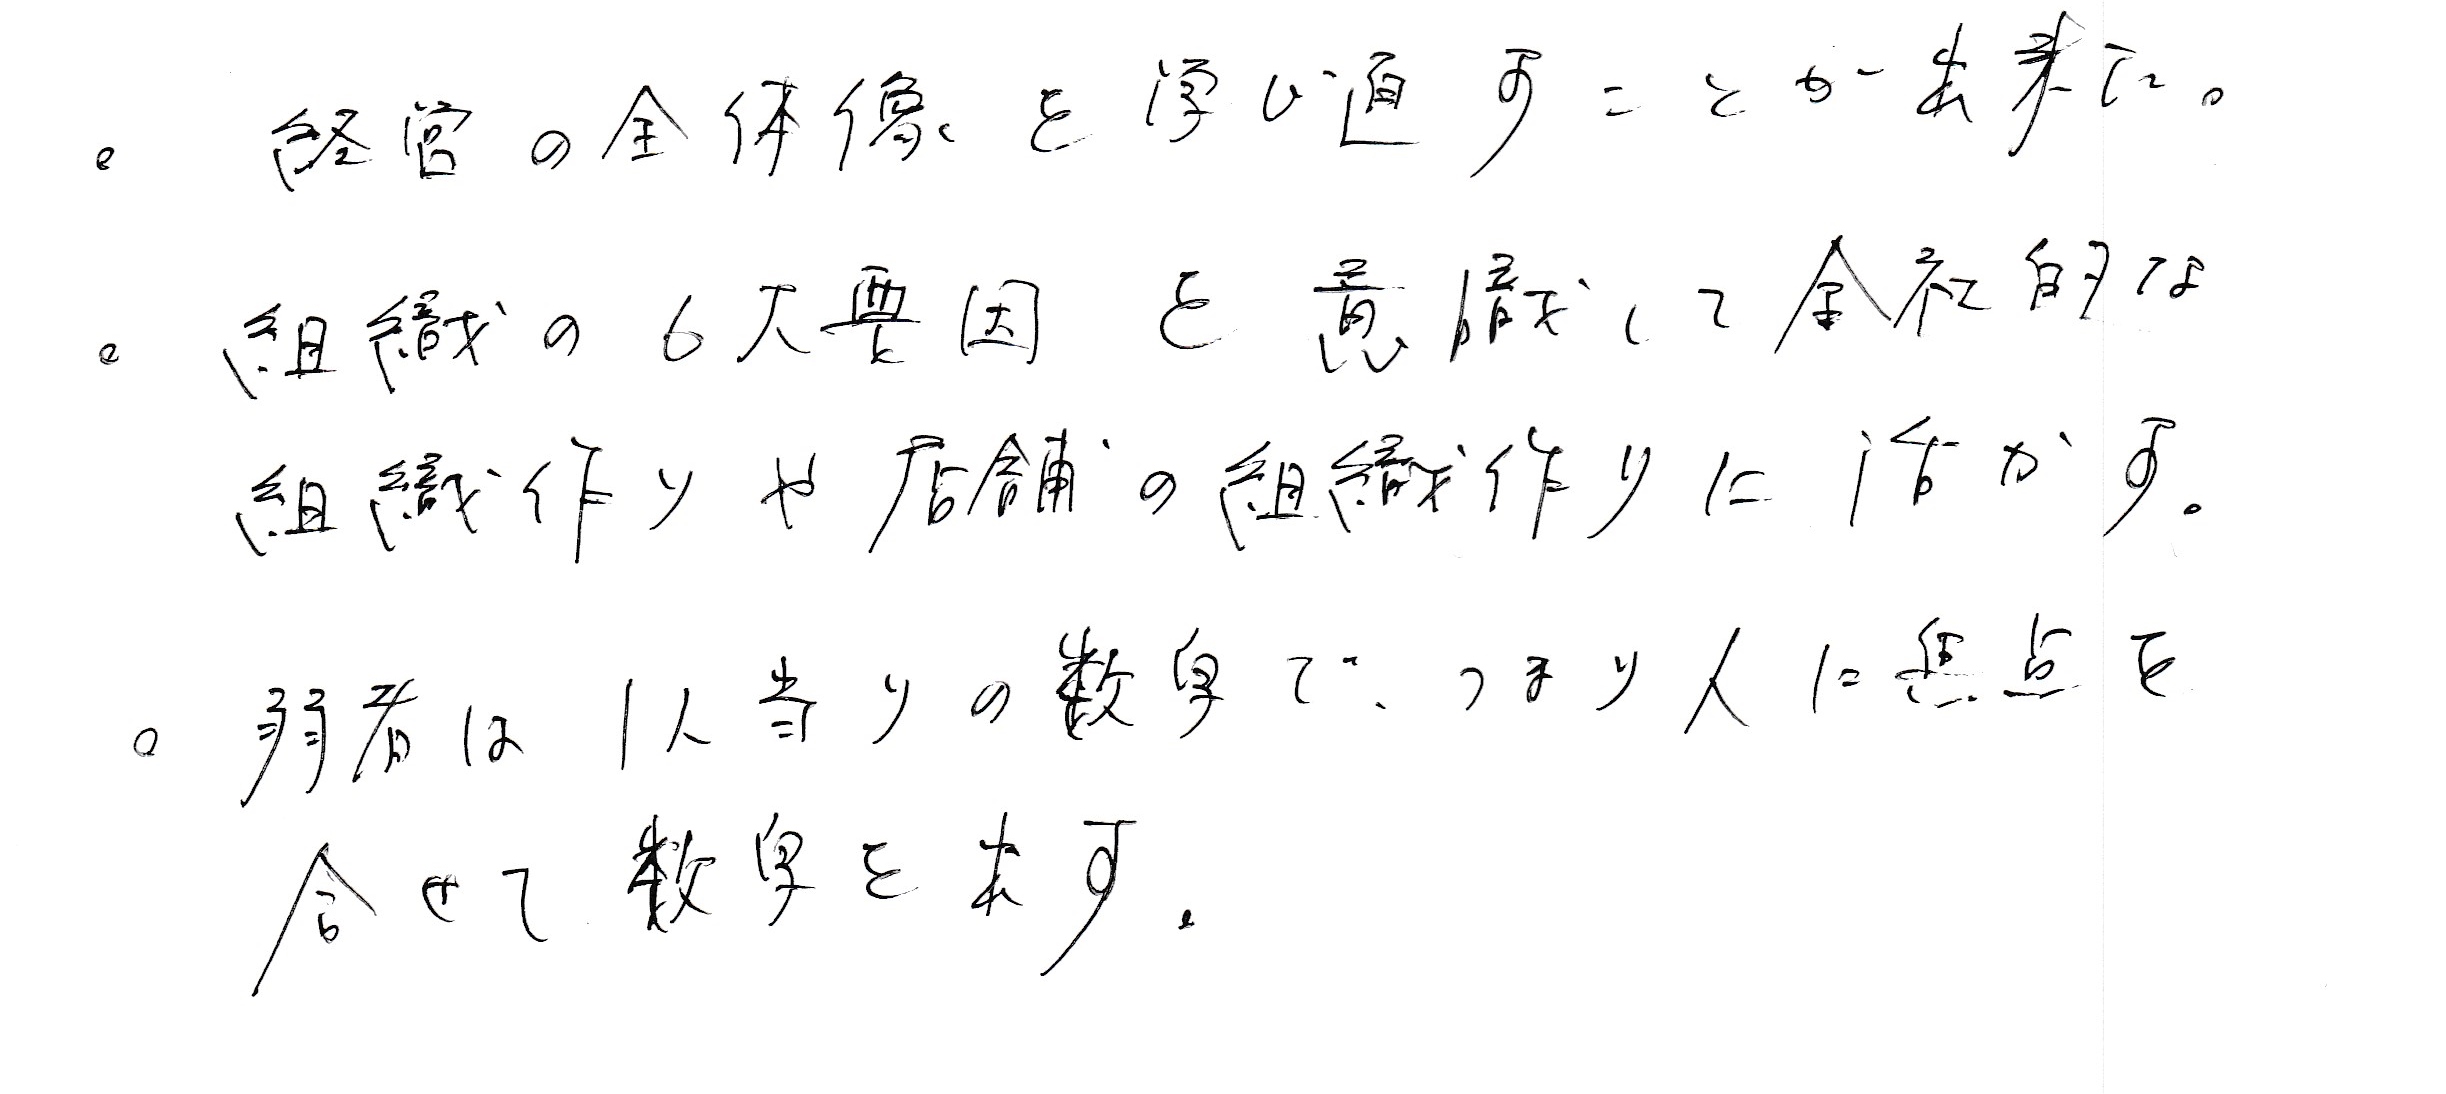 。経営の全体像を学び直すことが出来た。
。組織の6大要因を意識して全社的な
組織作りや店舗の組織作りに活かす。
。弱者は1人当りの数字で、つまり人に焦点を
合せて数字を出す。